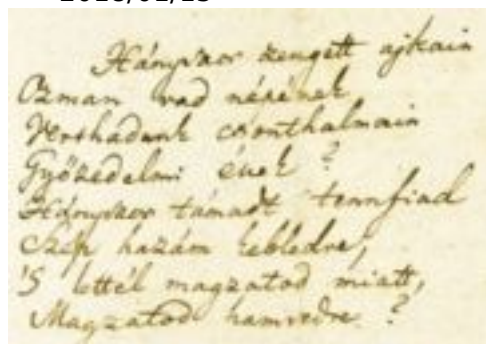 Hányszor zengett ajkain
Ozman vad népének
Vert hadunk csonthalmain
Győzedelmi ének ?
Hányszor támadt tennfiad
Szép hazám kebledre,
'S lettél magzatod miatt,
Magzatod hamvedre ?